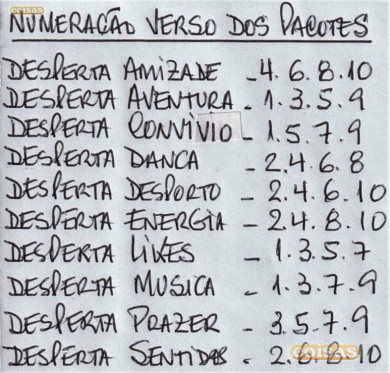 NUMERAÇÃO VERSO DOS PACOTES
DESPERTA AMIZADE - 4.6.8.10
DESPERTA AVENTURA - 1.3.5.9
DESPERTA CONVÍVIO - 1.5.7.9
DESPERTA DANCA - 2.4.6.8
DESPERTA DESPORTO - 2.4.6.10
DESPERTA ENERGIA - 2.4.8.10
DESPERTA LIKES - 1.3.5.7
DESPERTA MUSICA - 1.3.7.9
DESPERTA PRAZER - 3.5.7.9
DESPERTA SENTIDOS - 2.6.8.10
COISAS